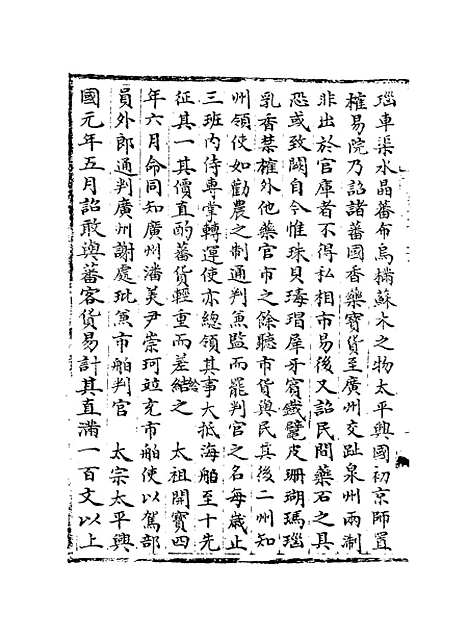 瑙車渠水晶蕃布烏樠蘇木之物太平興國初京師置
榷易院乃詔諸蕃國香藥寶貨至廣州交趾泉州兩浙
非出於官庫者不得私相市易後又詔民間藥石之具
恐或致闕自今惟珠貝瑇瑁犀牙賓鐵鼊皮珊瑚瑪瑙
乳香禁榷外他藥官市之餘聽市貨與民其後二州知
州領使如勸農之制通判兼監而罷判官之名每歲止
三班内侍專掌轉運使亦總領其事大抵海舶至十先
征其一其價直酌蕃貨輕重而差給之　太祖開寶四
年六月命同知廣州潘美尹崇珂並充市舶使以駕部
員外郎通判廣州謝處玭兼市舶判官　太宗太平興
國元年五月詔敢與蕃客貨易計其直滿一百文以上